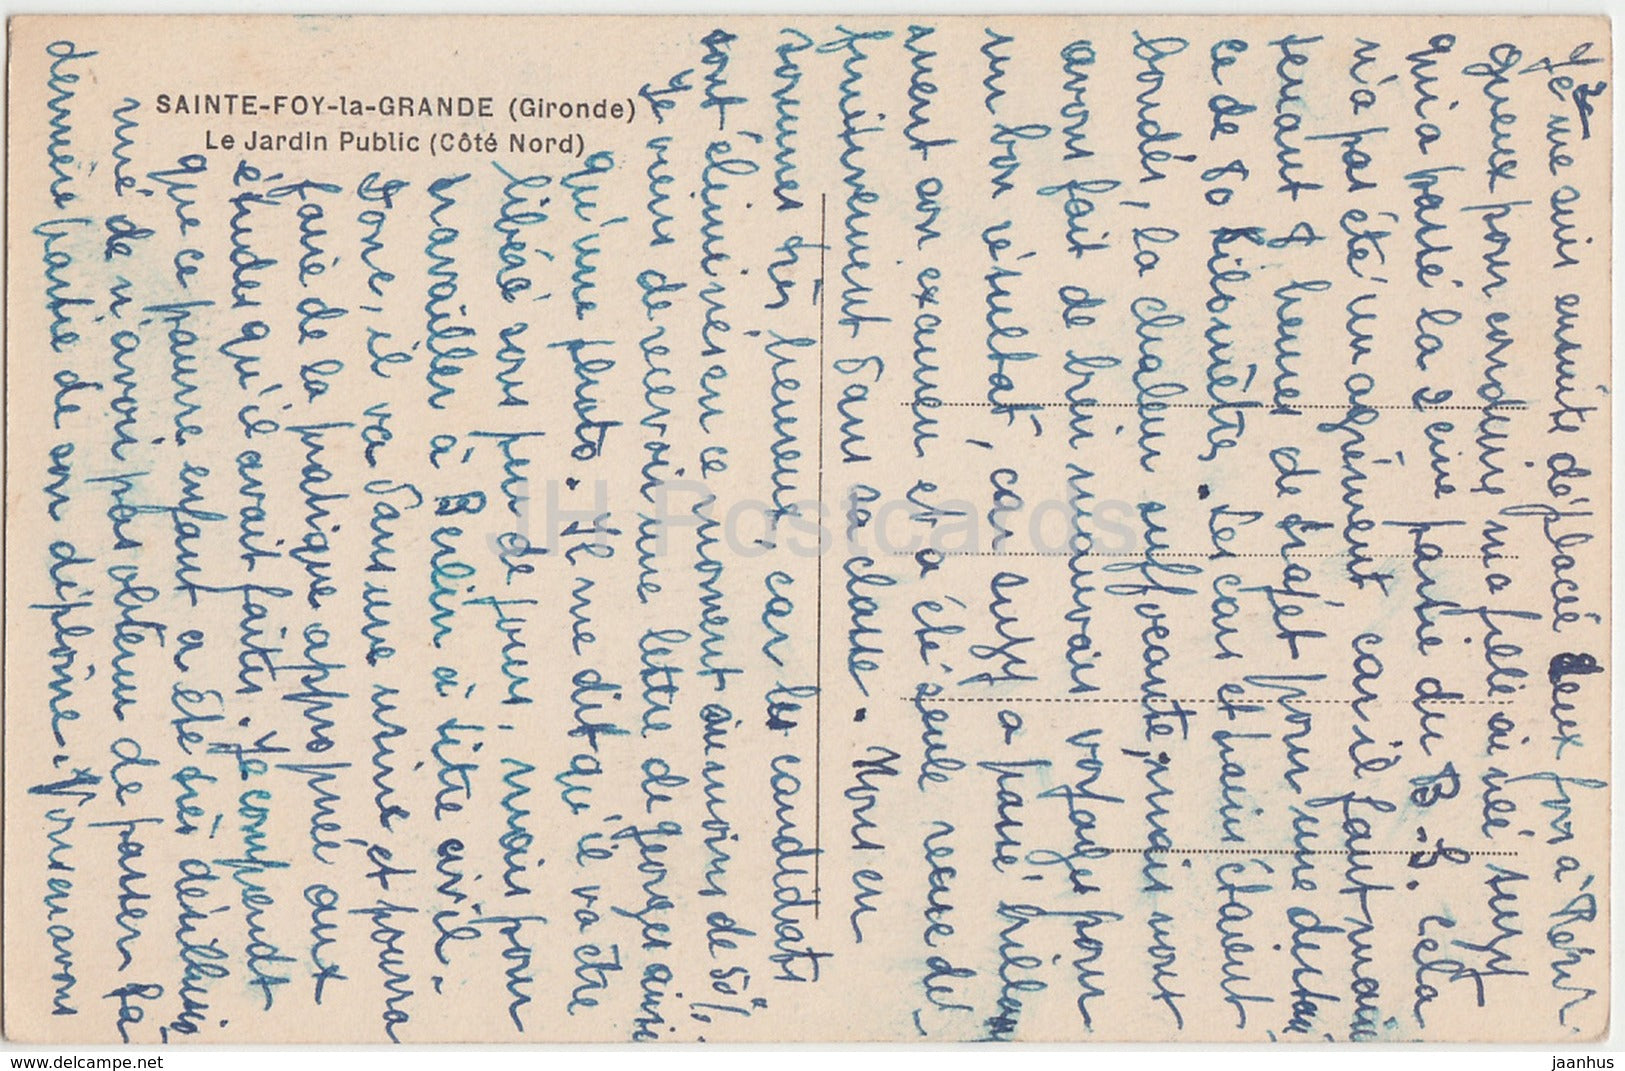 SAINTE-FOY-la-GRANDE (Gironde)
Le Jardin Public (Côté Nord)
Je me suis ensuite déplacé deux fois à
queux pour conduire ma fille ainée suzy
qui a passé la 2eme partie du B.S. cela
n'a pas été un agrément car il faut main
tenant 8 heures de trajet pour une distan
ce de 80 Kilomètres. Les cars et trains étaient
bondés, la chaleur suffocante, mais nous
avons fait de bien mauvais voyages pour
un bon résultat, car suzy a passé brillam
ment son examen et a été seule recue dé-
finitivement dans sa classe. Nous en
sommes très heureux, car les candidats
sont éliminés en ce moment au moins de 50%.
Je viens de recevoir une lettre de georges ainsi
qu'une photo. Il me dit qu'il va être
libéré sous peu de jours, mais pour
travailler à Berlin à titre civil.
Donc, il va dans une usine et pourra
faire de la pratique appropriée aux
études qu'il avait faites. Je comprends
que ce pauvre enfant a été très désillusion
né de n'avoir pas obtenu de passer la
dernière partie de son diplôme. Nous en avons
JH Postcards
www.delcampe.net
jaanhus